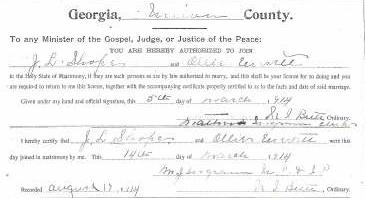 Georgia, County.
To any Minister of the Gospel, Judge, or Justice of the Peace:
YOU ARE HEREBY AUTHORIZED TO JOIN
J. L. and Ollie
in the Holy State of Matrimony, if they are such persons as are by law authorized to marry, and this shall be your license for so doing and you
are required to return to me this license, together with the accompanying certificate properly certified as to the facts and date of said marriage.
Given under my hand and official signature, this 5th day of March 1914
Ordinary.
I hereby certify that J. L. and Ollie were duly
joined in matrimony by me. This 14th day of March 1914
Recorded August 17, 1914 Ordinary.